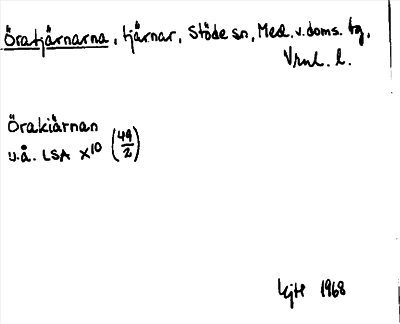 Öratjärnarna, tjärnar, Stöde sn, Med. v. doms. tg,
Vrnl. l.
Örakiärnan
u.å. LSA X10 (49/2)
1968